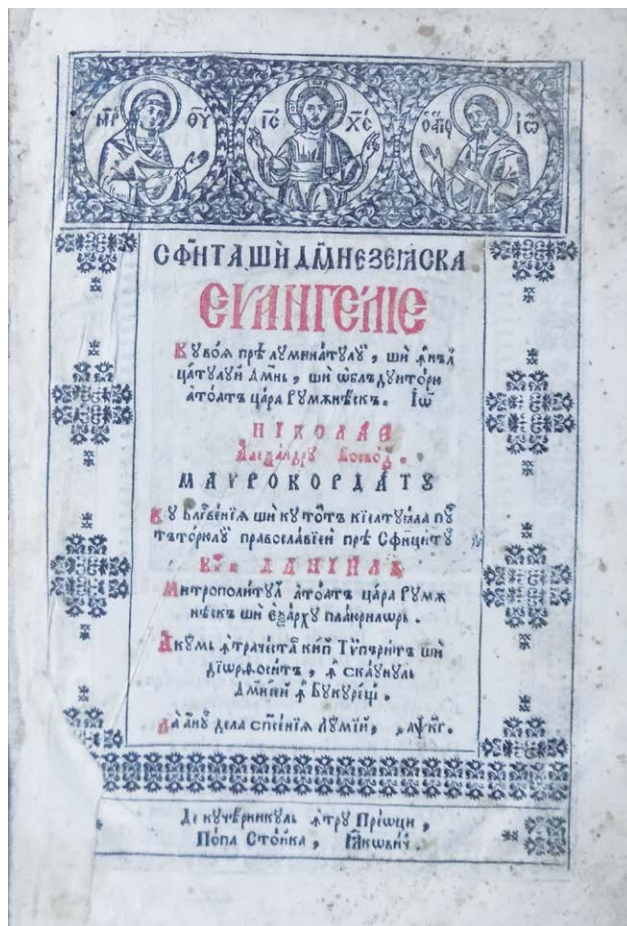 МР҃ ѲУ҃ І҃С Х҃С О҃АГІѠ ІѠ҃
СФ҃НТА Шѝ ДМ҃НЕЗЕꙖСКА
ЕѴАНГЕЛІЕ
Кꙋ во́ѧ прѣ̀ лꙋмина́тꙋлꙋй , шѝ ꙟ҆нъл
ца́тꙋлꙋй Дѡ́мнь , шѝ ѡ҆блъдꙋито́рю
а҆то́атъ цара Рꙋмѫнѣ́скъ . Іѡ҃
НІКОЛАЕ
Алеѯа́ндрꙋ Воево́д .
МАѴРОКОРДАТꙊ
Кꙋ Блг҃ве́нїѧ шѝ кꙋ то́тъ кїелтꙋѧ́ла пꙋ
тъто́рюлꙋ правосла́вїей прѣ̀ Сфинци́тꙋ
Ку҃ръ ДАНІИЛЪ
Митрополи́тꙋл а҆то́атъ цара Рꙋмѫ
нѣ́скъ шѝ є҆ѯа́рхꙋ пла́юрилѡрь .
Акꙋмь ꙟ҆трачѣста̀ кип Тѷпъри́тъ шѝ
дїѡрѳоси́тъ , ꙟ҆ ска́ꙋнꙋль
Дмнїей ꙟ҆ Бꙋкꙋре́щй .
Ла а́нꙋ дела сп҃се́нїѧ лꙋ́мїй , ҂аѱк҃г .
Де кꙋче́рникꙋль ꙟ҆трꙋ Прео́ци ,
По́па Сто́ика , І҆а́кѡвичй .